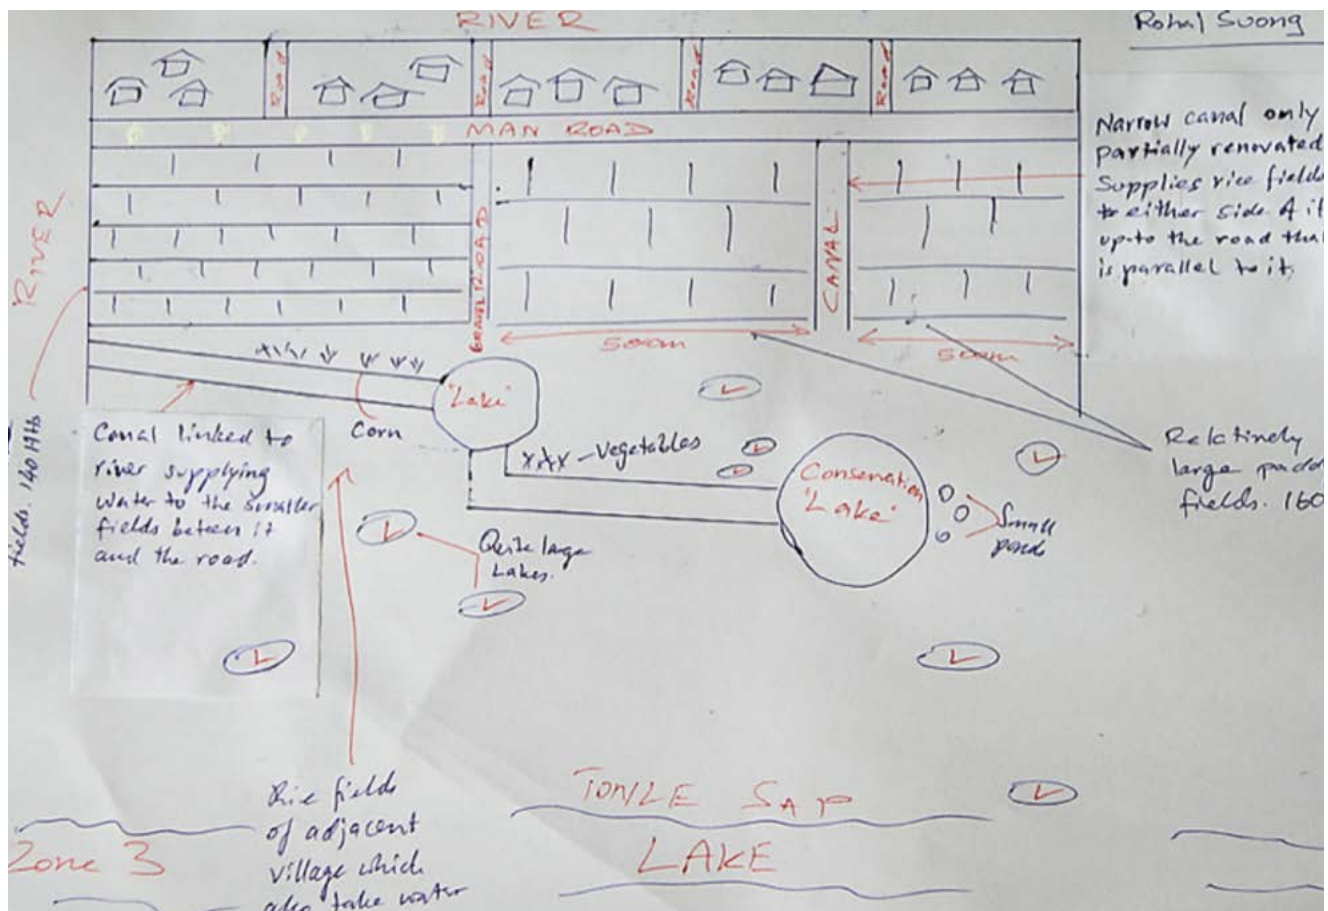 RIVER
Rohal Suong
Road
Road
Road
Road
MAN ROAD
Narrow canal only
partially renovated
Supplies rice fields
to either side of it
up-to the road that
is parallel to it.
RIVER
GRAVEL ROAD
CANAL
500m
500m
"Lake"
Corn
Canal linked to
river supplying
water to the smaller
fields beteen it
and the road.
fields. 140 HHs
xxx - Vegetables
Conservation
"Lake"
Small
ponds
Relctinely
large padd
fields. 160
L
L
L
L
L
L
L
L
L
Quite large
Lakes.
Rice fields
of adjacent
village which
also take water
TONLE SAP
LAKE
Zone 3